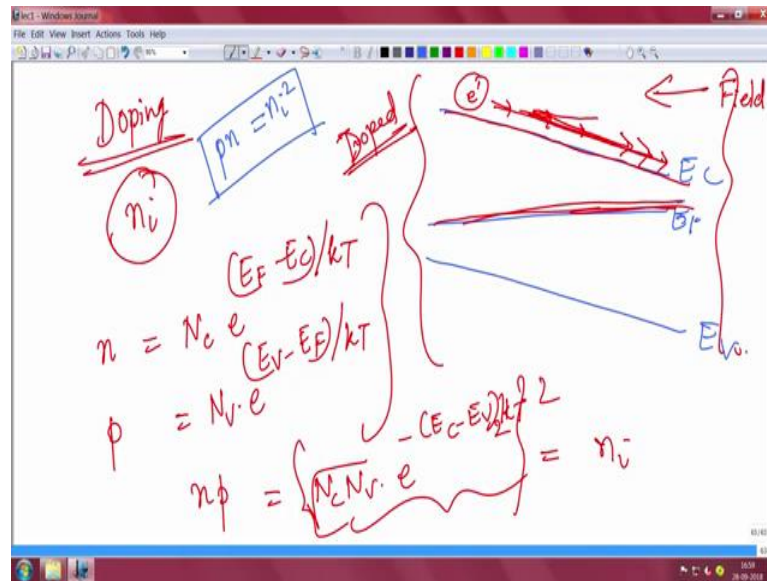 lec1 - Windows Journal
File Edit View Insert Actions Tools Help
Doping
pn = ni²
ni
Doped
e⁻
← Field
EC
EF
EV
n = Nc e^(EF - EC)/kT
p = Nv. e^(EV - EF)/kT
np = {√NcNv. e^-(EC - EV)/2kT}² = ni
16:59
28-09-2018